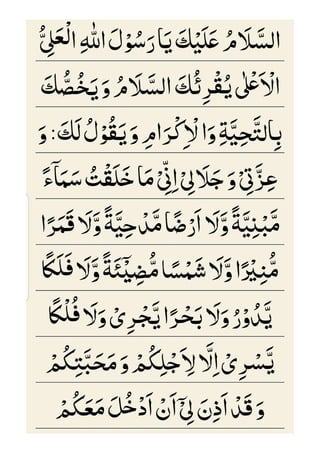 السَّلَامُ عَلَيْكَ يَا رَسُوْلَ اللهِ الْعَلِىُّ
الْاَعْلٰى يُقْرِئُكَ السَّلَامُ وَ يَخُصُّكَ
بِالتَّحِيَّةِ وَا الْاِكْرَامِ وَ يَقُوْلُ لَكَ: وَ
عِزَّتِيْ وَ جَلَالِيْ اِنِّيْ مَا خَلَقْتُ سَمَآءً
مَّبْنِيَّةً وَّلَا اَرْضًا مَّدْحِيَّةً وَّلَا قَمَرًا
مُّنِيْرًا وَّلَا شَمْسًا مُّضِيْٓئَةً وَّلَا فَلَكًا
يَّدُوْرُ وَلَا بَحْرًا يَّجْرِىْ وَلَا فُلْكًا
يَّسْرِىْ اِلَّا لِاَجْلِكُمْ وَ مَحَبَّتِكُمْ
وَ قَدْ اَذِنَ لِيْٓ اَنْ اَدْخُلَ مَعَكُمْ